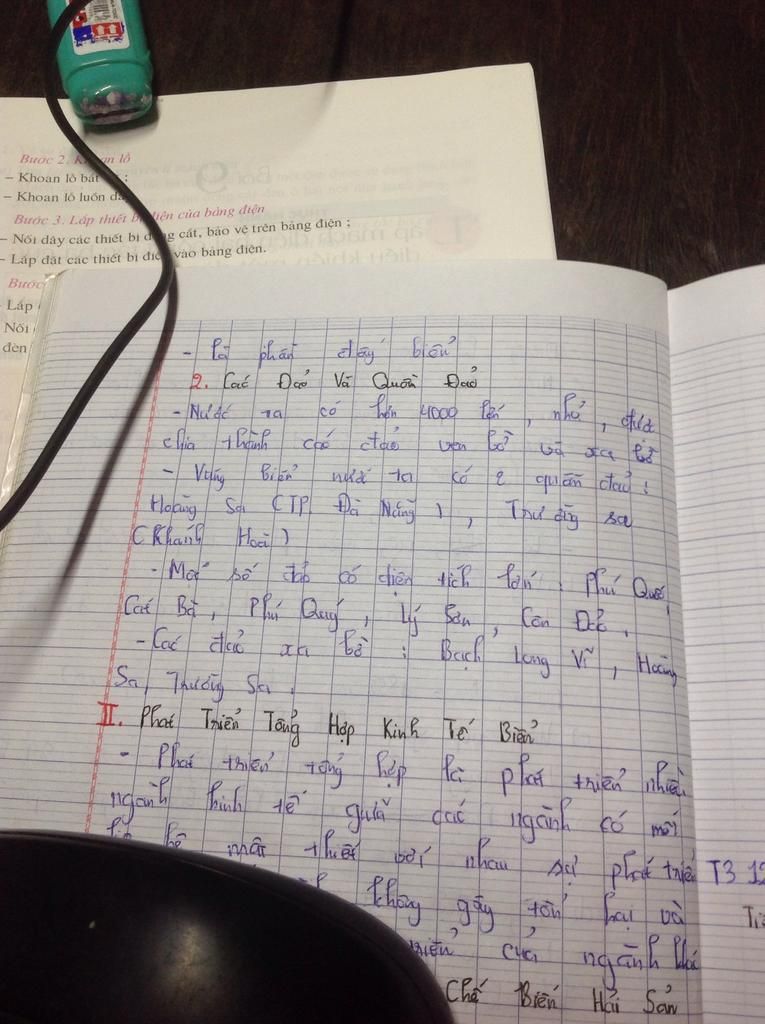 Bước 2. Khoan lỗ
– Khoan lỗ bắt ;
– Khoan lỗ luồn dâ
Bước 3. Lắp thiết bị điện của bảng điện
– Nối dây các thiết bị đóng cắt, bảo vệ trên bảng điện ;
– Lắp đặt các thiết bị điện vào bảng điện.
Bước
Lắp
Nối
đèn
- Là phần đáy biển
2. Các Đảo Và Quần Đảo
- Nước ta có hơn 4000 lớn, nhỏ, được
chia thành các đảo ven bờ và xa bờ
- Vùng biển nước ta có 2 quần đảo :
Hoàng Sa (TP. Đà Nẵng), Trường Sa
(Khánh Hoà)
- Một số đảo có diện tích lớn : Phú Quốc,
Cát Bà, Phú Quý, Lý Sơn, Côn Đảo,
- Các đảo xa bờ : Bạch Long Vĩ, Hoàng
Sa, Trường Sa.
II. Phát Triển Tổng Hợp Kinh Tế Biển
- Phát triển tổng hợp là phát triển nhiều
ngành kinh tế giữa các ngành có mối
hệ mật thiết với nhau sự phát triển
không gây tổn hại và
triển của ngành khác
Chế Biến Hải Sản
T3 12